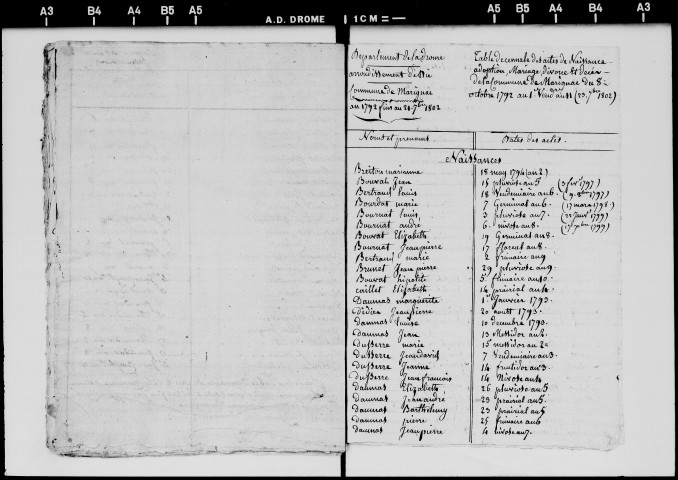 A3 B4 A4 B5 A5 A5 B5 A4 B4 A3
A.D. DROME 1 CM =
Département de la drome
arrondissement de Die
Commune de Marignac
an 1792 au 21 7bre 1802
Table décennale des actes de Naissance
adoption, Mariage, divorce et décès
de la Commune de Marignac du 8
octobre 1792 au 1er Vendre an 11 (23 7bre 1802)
Noms et prénoms Dates des actes.
Naissances
Breton marianne 18 may 1794 (an 2)
Bouvat Jean 15 pluviose an 5 (3 fevr 1797)
Bertrand Louis 18 Vendemiaire an 6 (9 8bre 1797)
Bourdat marie 7 Germinal an 6 (17 mars 1798)
Bournat Louis 3 pluviose an 7 (22 Janr 1799)
Bournat andré 6 nivose an 8
Bouvat Elizabeth 19 Germinal an 8
Bournet Jean pierre 17 floreal an 8
Bertrand marie 2 frimaire an 9
Brunet Jean pierre 29 pluviose an 9
Bouvat 5 frimaire an 10
Caillet Elizabeth 14 prairial an 10
Daumas marguerite 1 Janvier 1793
Dédier Jean Pierre 20 aoust 1793
Daumas Louise 10 decembre 1793
Daumas Jean 13 Messidor an 2
Dusserre marie 15 messidor an 2
Dusserre Jean david 7 Vendemiaire an 3
Dusserre Jeanne 14 fructidor an 3
Dusserre Jean francois 14 Nivose an 4
Daumas Elizabeth 26 pluviose an 5
Daumas Jean andré 29 prairial an 5
Daumas Barthélemy 23 prairial an 5
Daumas pierre 25 frimaire an 6
Daumas Jean pierre 4 nivose an 7
A3 B4 A4 B5 A5 A5 B5 A4 B4 A3